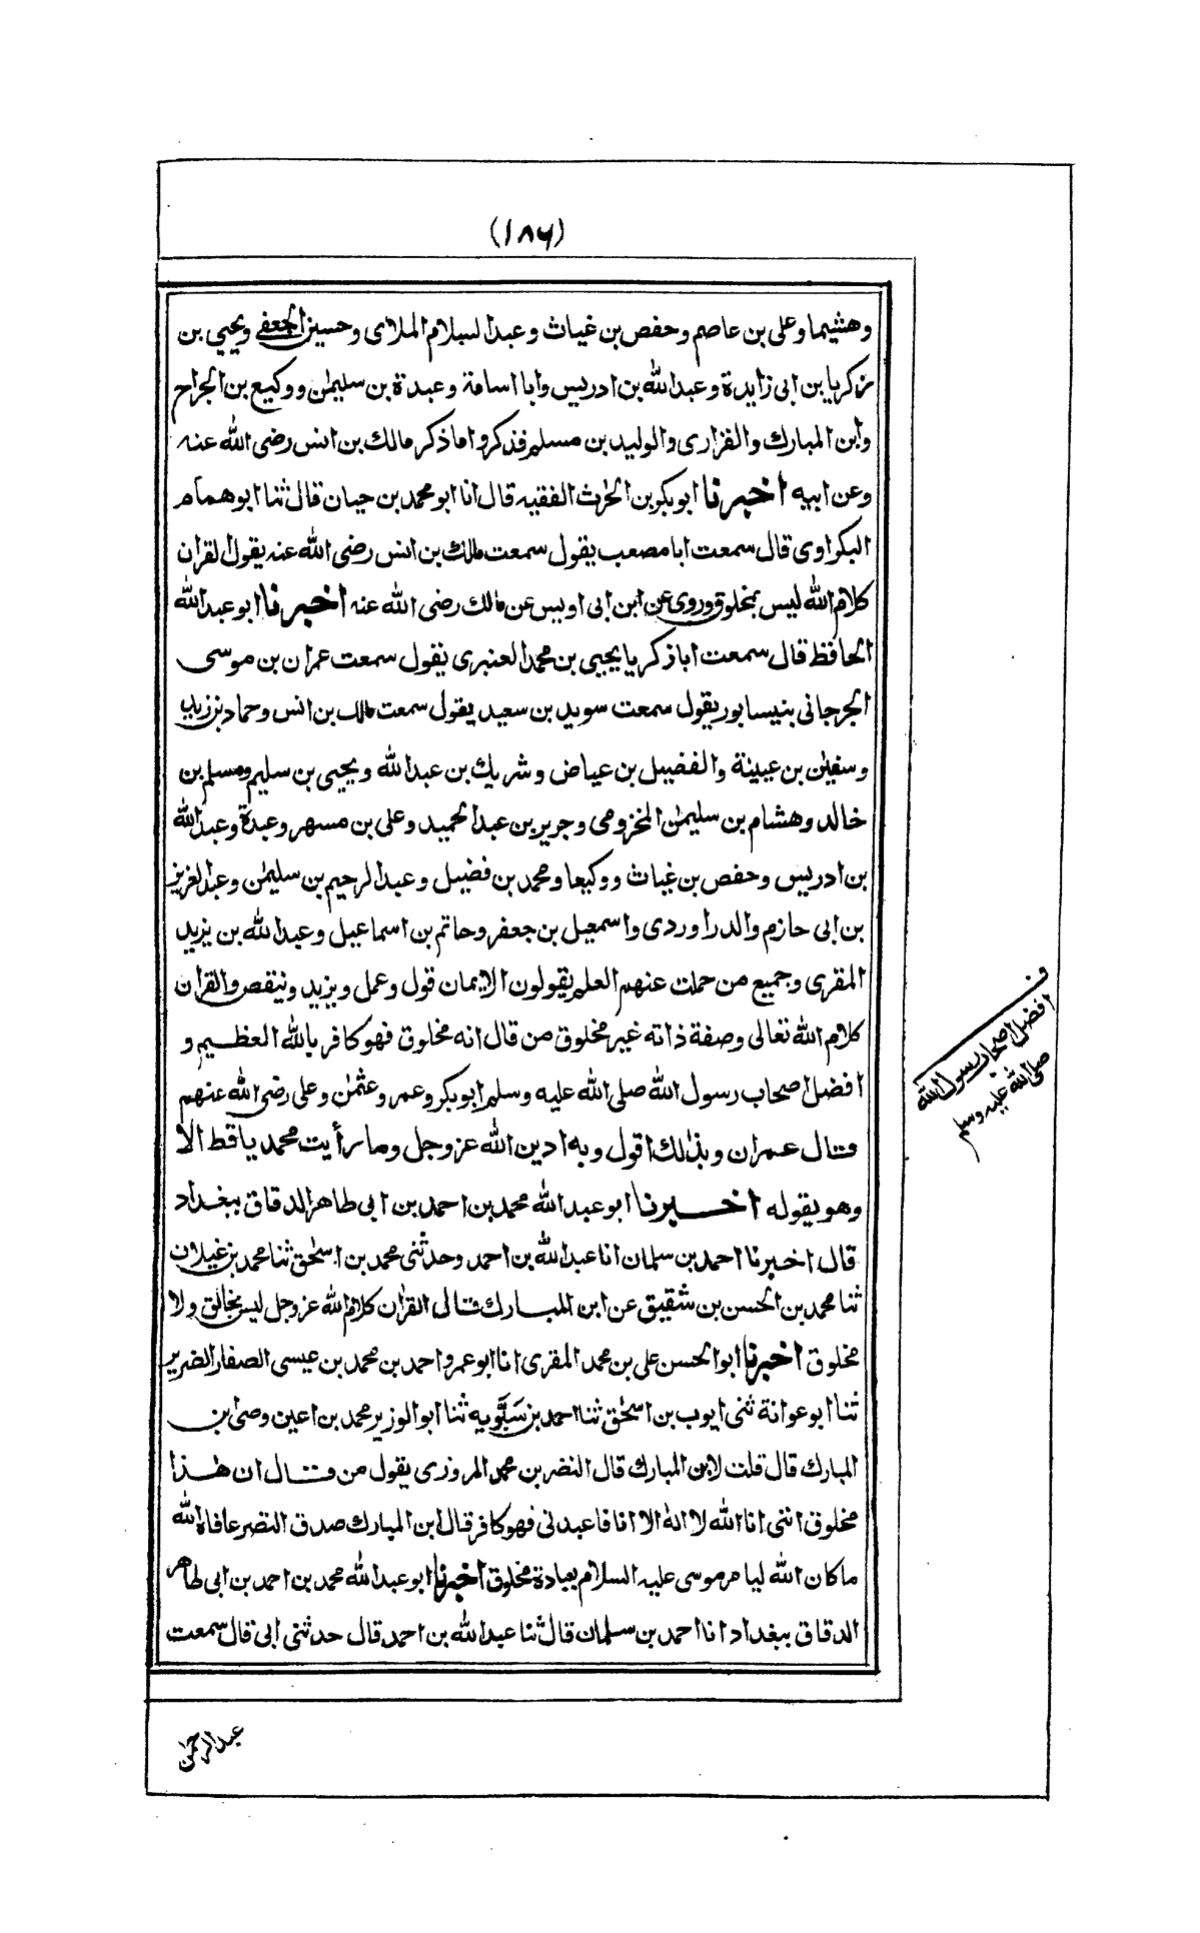 (۱۸۶)
وهشيما وعلى بن عاصم وحفص بن غياث وعبد السلام الملاى وحسين الجعفى ويحيى بن
زكريا بن ابى زايدة وعبد الله بن ادريس وابا اسامة وعبدة بن سليمٰن ووكيع بن الجراح
وابن المبارك والفزارى والوليد بن مسلم فذكروا ما ذكر مالك بن انس رضى الله عنه
وعن ابيه اخبرنا ابو بكر بن الحرث الفقيه قال انا ابو محمد بن حيان قال ثنا ابو همام
البكراوى قال سمعت ابا مصعب يقول سمعت مالك بن انس رضى الله عنه يقول القران
كلام الله ليس بمخلوق وروى عن ابن ابى اويس عن مالك رضى الله عنه اخبرنا ابو عبد الله
الحافظ قال سمعت ابا زكريا يحيى بن محمد العنبرى يقول سمعت عمران بن موسى
الجرجانى بنيسابور يقول سمعت سويد بن سعيد يقول سمعت مالك بن انس وحماد بن زيد
وسفيٰن بن عيينة والفضيل بن عياض وشريك بن عبد الله ويحيى بن سليم ومسلم بن
خالد وهشام بن سليمٰن المخزومى وجرير بن عبد الحميد وعلى بن مسهر وعبدة وعبد الله
بن ادريس وحفص بن غياث ووكيعا ومحمد بن فضيل وعبد الرحيم بن سليمٰن وعبد العزيز
بن ابى حازم والدراوردى واسمعيل بن جعفر وحاتم بن اسماعيل وعبد الله بن يزيد
المقرى وجميع من حملت عنهم العلم يقولون الايمان قول وعمل ويزيد وينقص والقران
كلام الله تعالى وصفة ذاته غير مخلوق من قال انه مخلوق فهو كافر بالله العظيم و
افضل اصحاب رسول الله صلى الله عليه وسلم ابو بكر وعمر وعثمٰن وعلى رضى الله عنهم
قال عمران وبذٰلك اقول وبه ادين الله عز وجل وما رأيت محمديا قط الا
وهو يقوله اخبرنا ابو عبد الله محمد بن احمد بن ابى طاهر الدقاق ببغداد
قال اخبرنا احمد بن سلمان انا عبد الله بن احمد وحدثنى محمد بن اسحٰق ثنا محمد بن غيلان
ثنا محمد بن الحسن بن شقيق عن ابن المبارك قال القراٰن كلام الله عز وجل ليس بخالق ولا
مخلوق اخبرنا ابو الحسن على بن محمد المقرى انا ابو عمرو احمد بن محمد بن عيسى الصفار الضرير
ثنا ابو عوانة ثنى ايوب بن اسحٰق ثنا احمد بن شبّويه ثنا ابو الوزير محمد بن اعين وصى ابن
المبارك قال قلت لابن المبارك قال النضر بن محمد المروزى يقول من قال ان هذا
مخلوق اننى انا الله لا الٰه الا انا فاعبدنى فهو كافر قال ابن المبارك صدق النضر عافاه الله
ما كان الله ليامر موسى عليه السلام بعبادة مخلوق اخبرنا ابو عبد الله محمد بن احمد بن ابى طاهر
الدقاق ببغداد انا احمد بن سلمان قال ثنا عبد الله بن احمد قال حدثنى ابى قال سمعت
عبد الرحمٰن
ف
افضل اصحاب رسول الله
صلى الله عليه وسلم